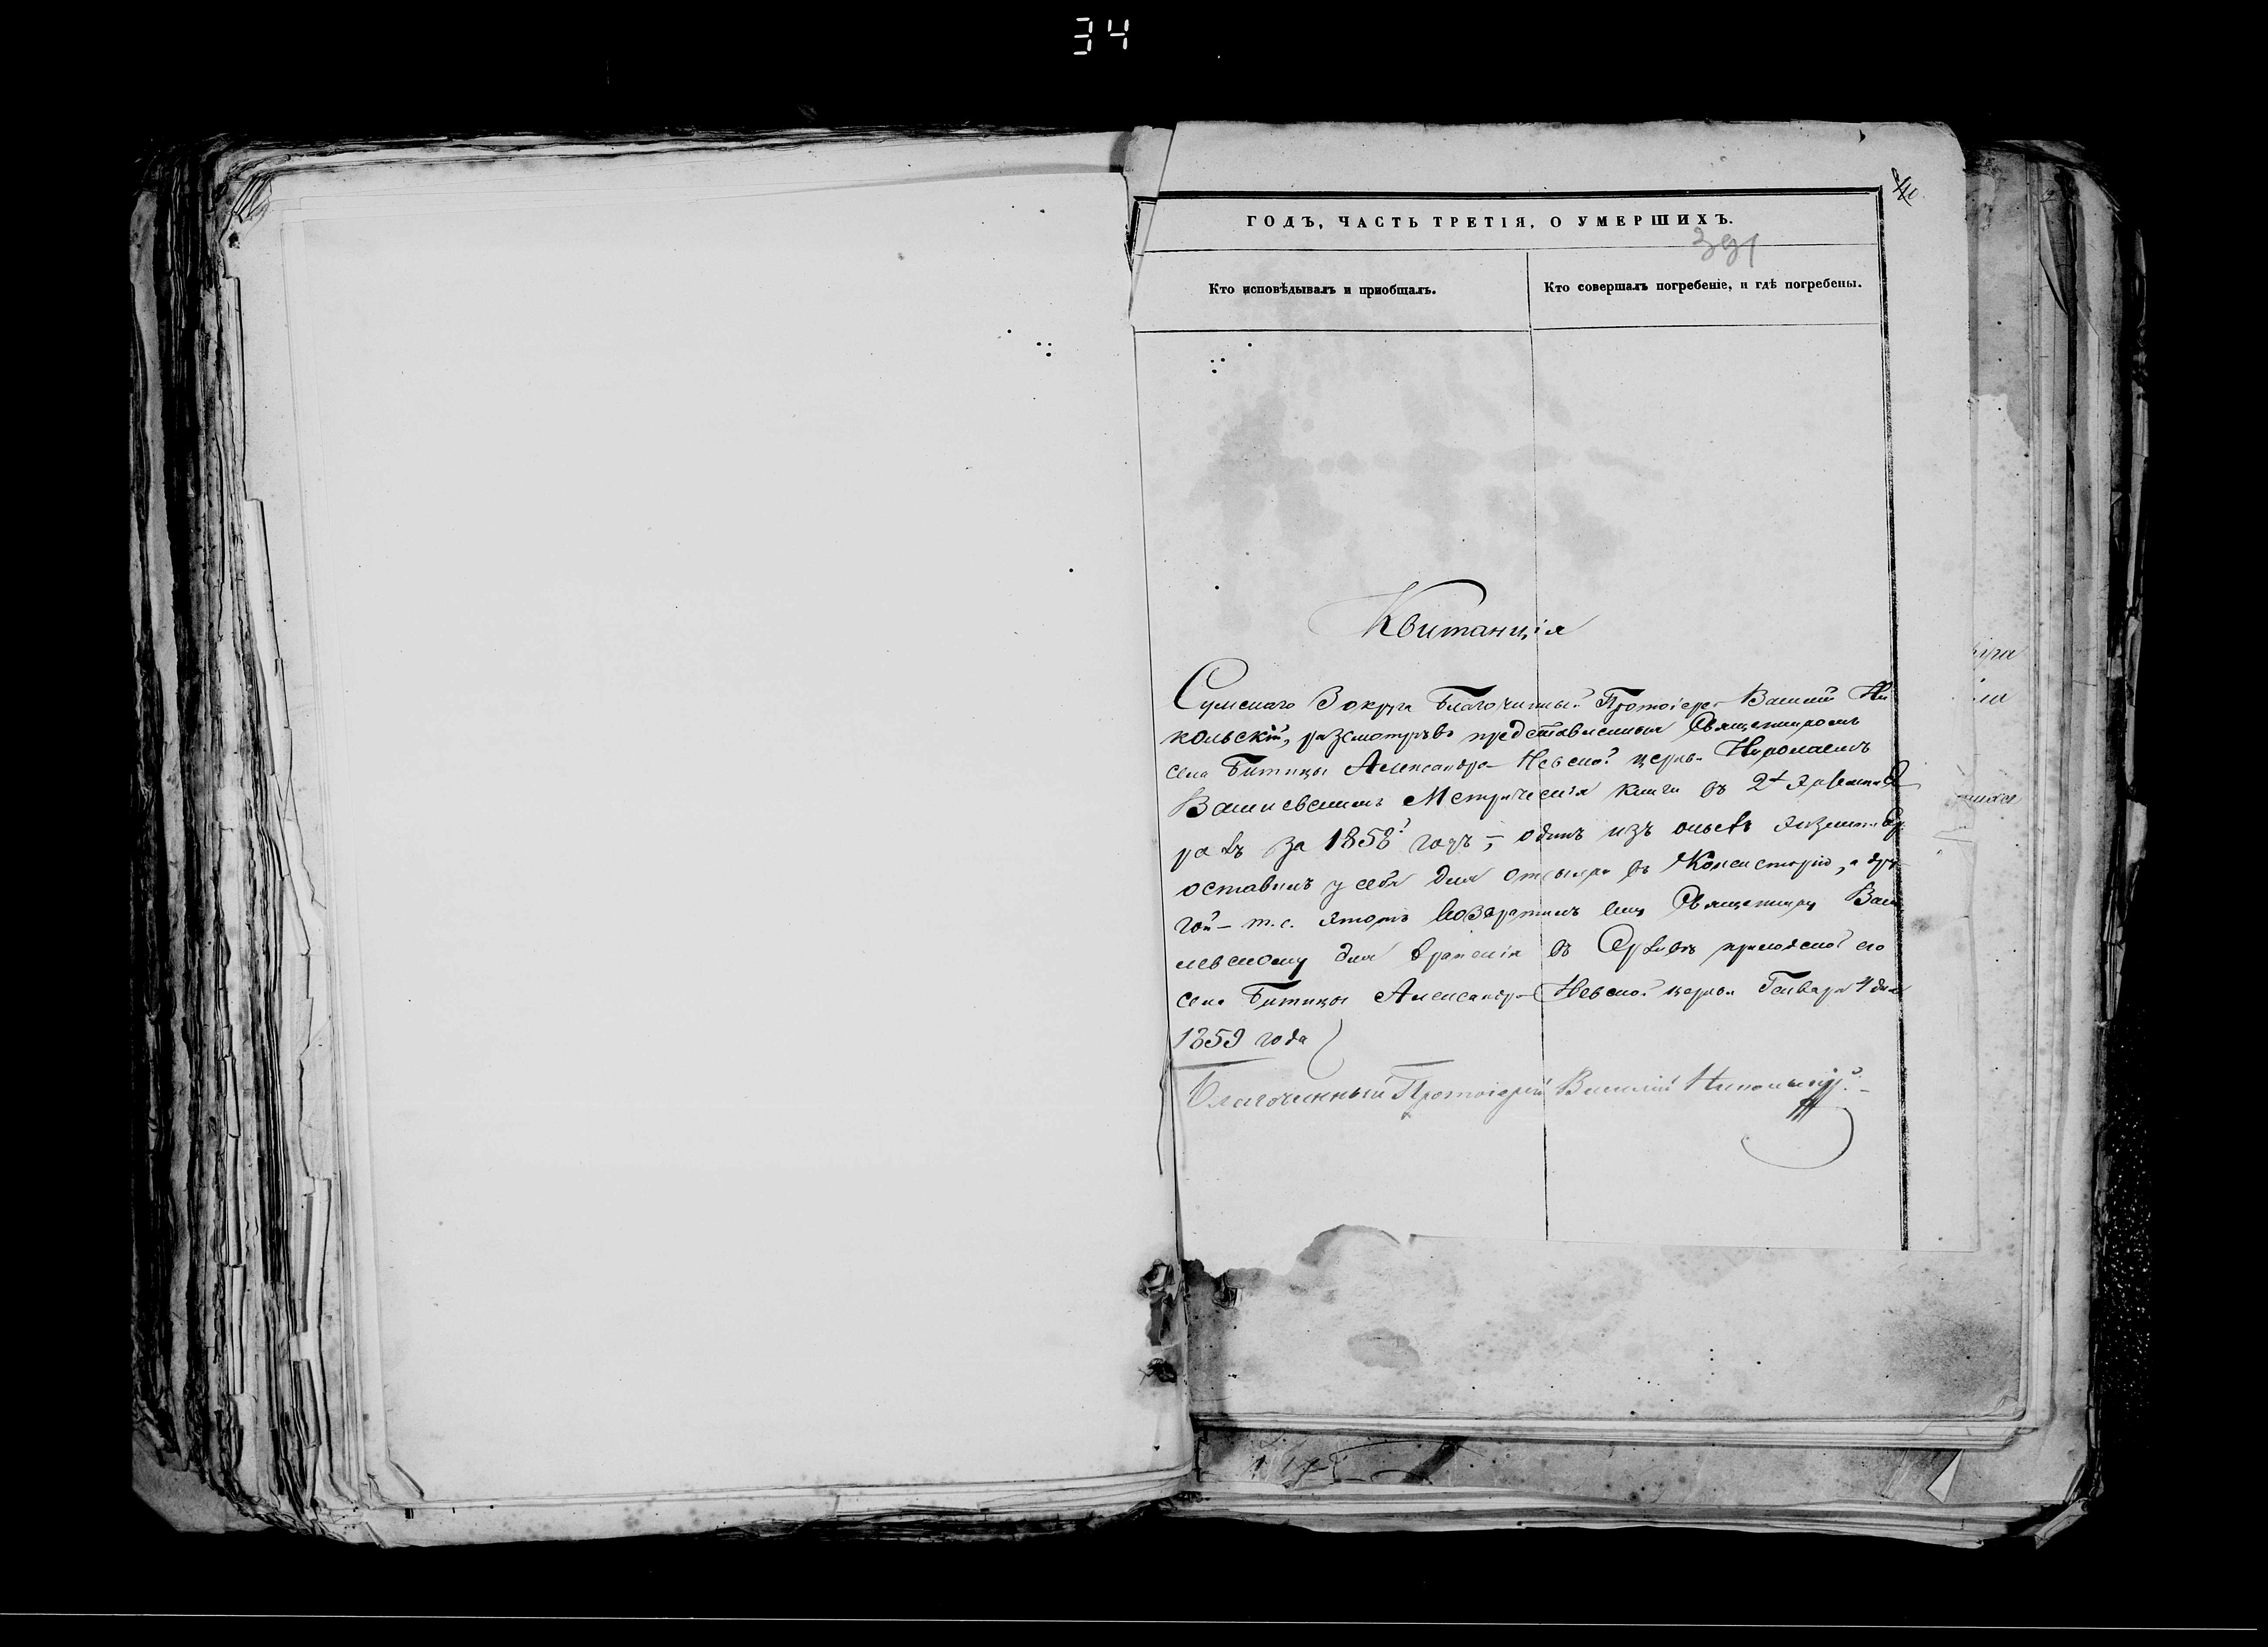 34
ГОДЪ, ЧАСТЬ ТРЕТІЯ, О УМЕРШИХЪ.
391
Кто исповѣдывалъ и приобщалъ.
Кто совершалъ погребеніе, и гдѣ погребены.
Квитанція
Сумскаго 3 округа Благочинный Протоіерей Василій Ни
кольскій, разсмотрѣвъ представленныя Священникомъ
села Битицы Александро-Невской церкви Николаемъ
Метрическія книги въ 2х
рахъ за 1858й годъ, одинъ изъ оныхъ экземпляръ
оставилъ у себя для отсылки въ Консисторію, а дру
гой - т.е. этотъ возвратилъ ему Священнику Васи
левскому для храненія въ Архивѣ приходской его
села Битицы Александро-Невской церкви Генваря 4 дня
1859 года
Благочинный Протоіерей Василій Никольскій.